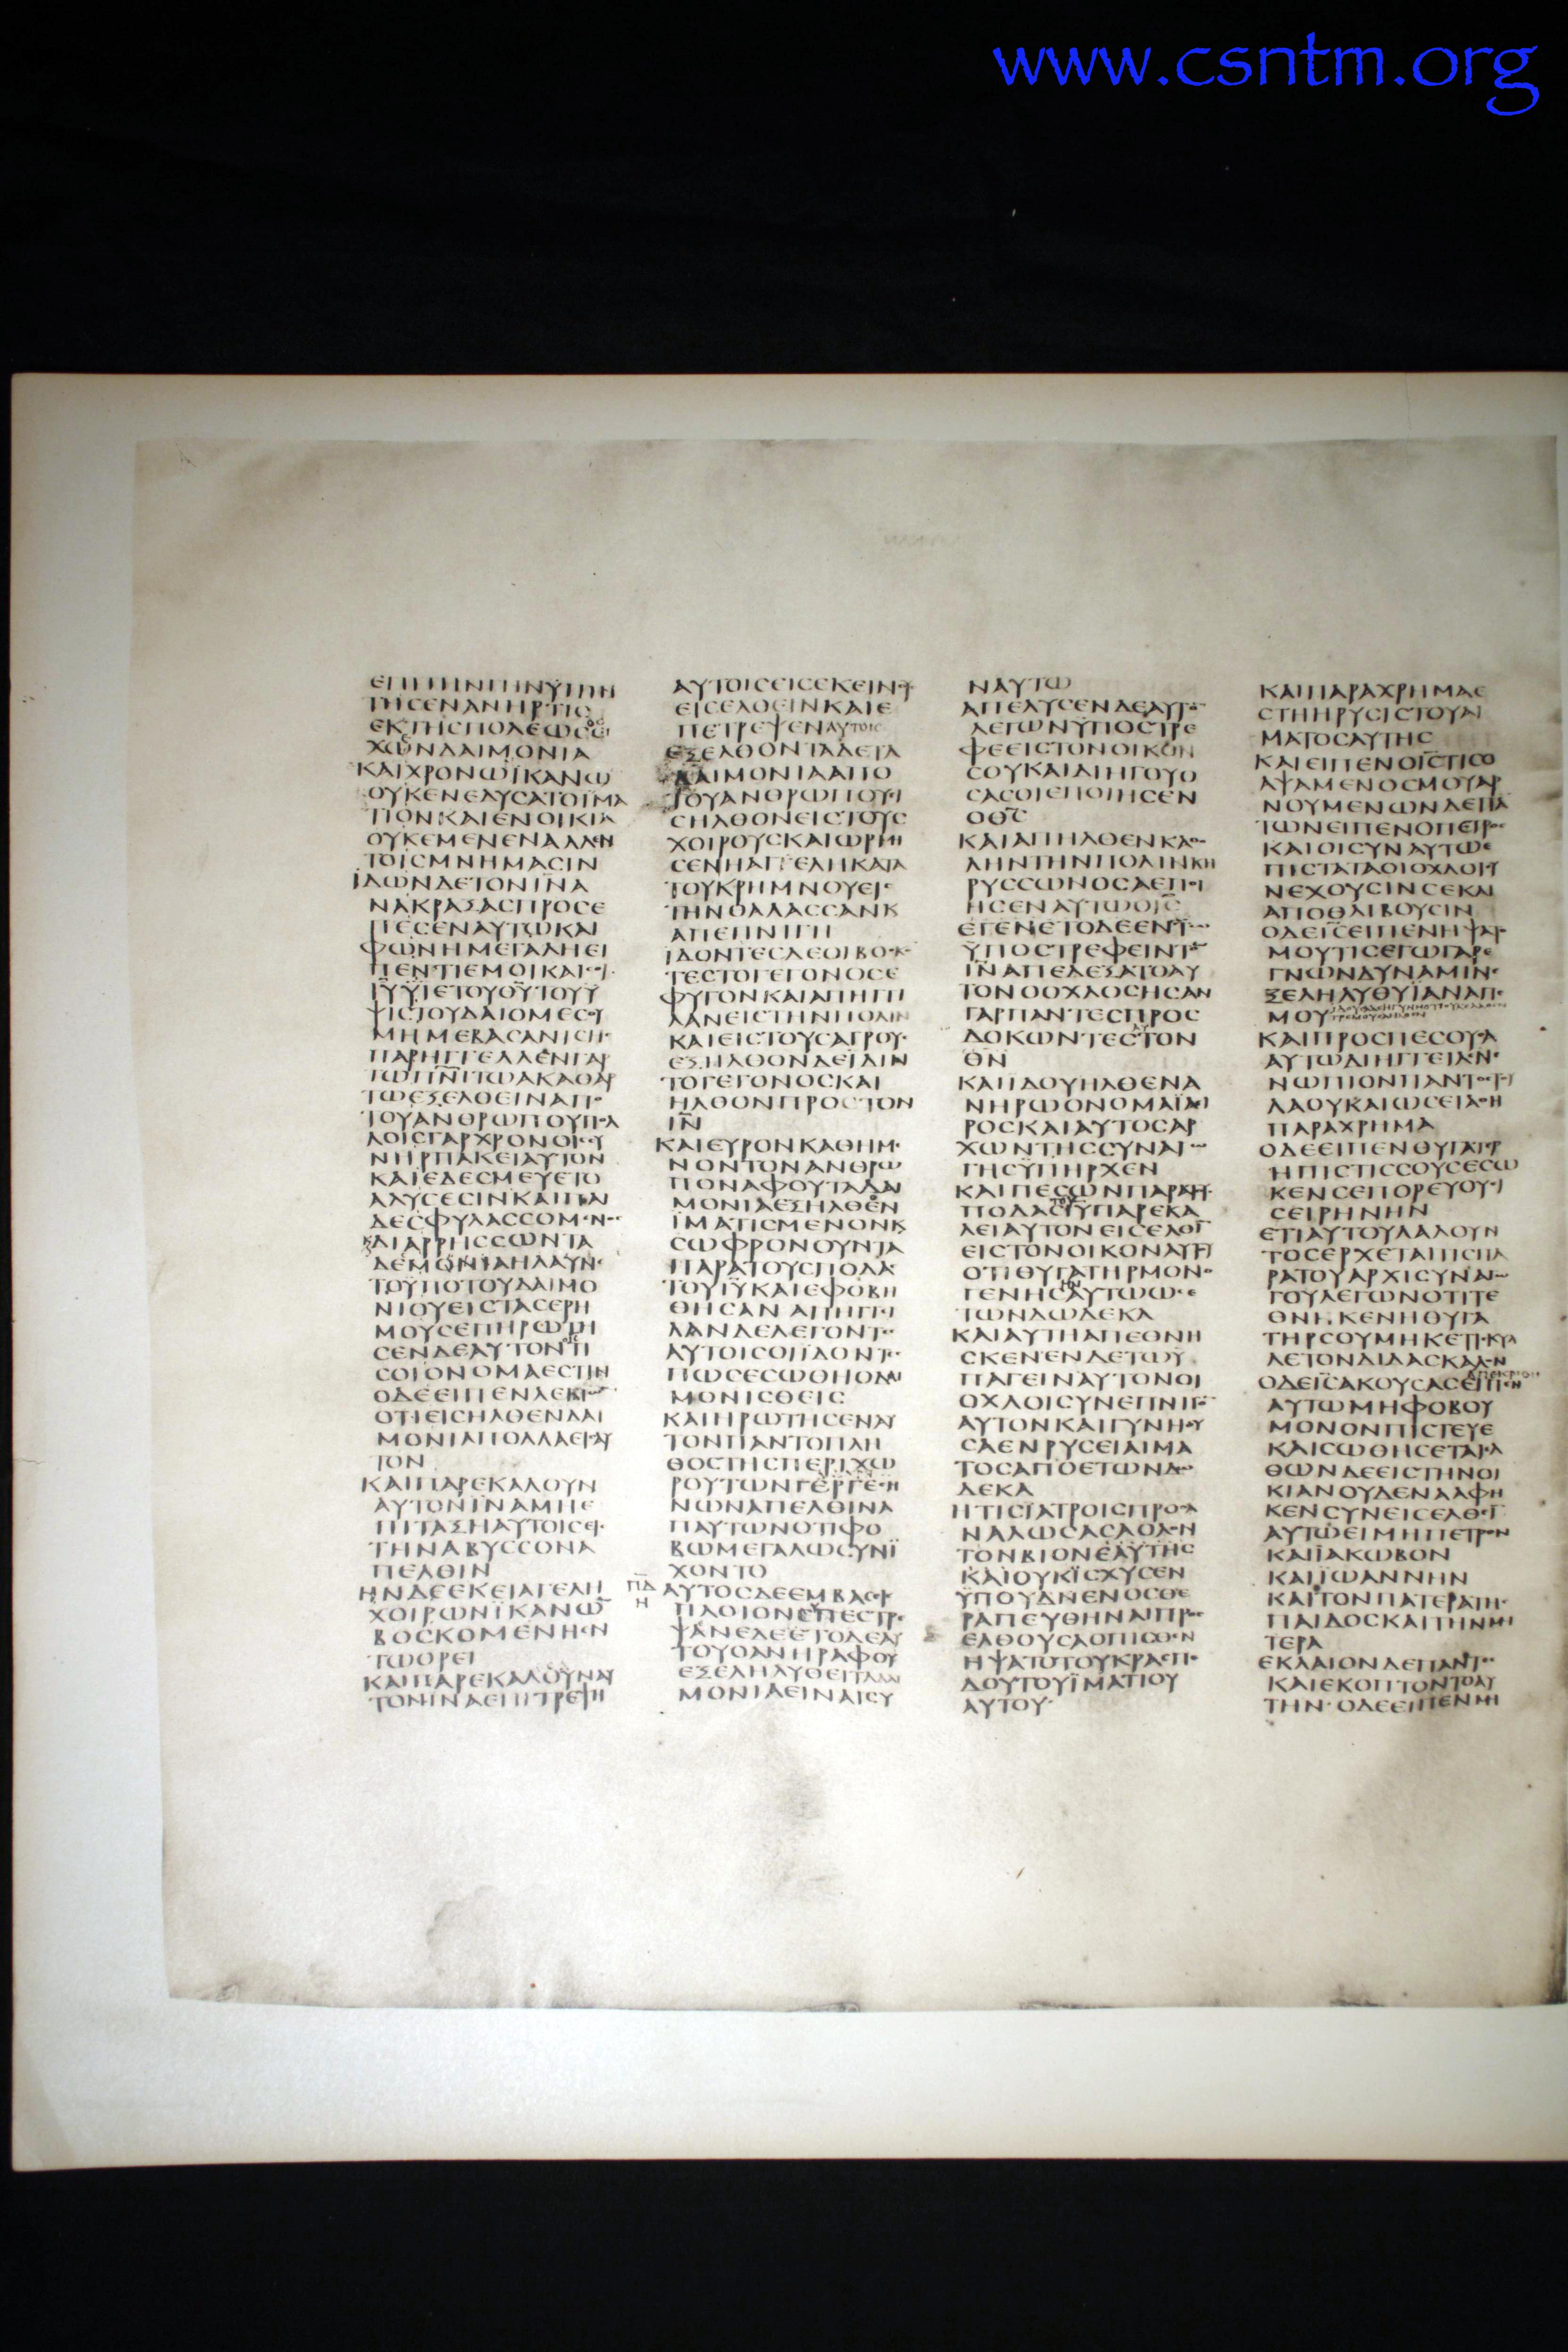 www.csntm.org
ΕΠΙΤΗΝΓΗΝΥΠΗ
ΤΗCΕΝΑΝΗΡΤΙC
ΕΚΤΗCΠΟΛΕωC
ΧωΝΔΑΙΜΟΝΙΑ
ΚΑΙΧΡΟΝωΪΚΑΝω
ΟΥΚΕΝΕΔΥCΑΤΟΪΜΑ
ΤΙΟΝΚΑΙΕΝΟΙΚΙΑ
ΟΥΚΕΜΕΝΕΝΑΛΛΕΝ
ΤΟΙCΜΝΗΜΑCΙΝ
ΪΔωΝΔΕΤΟΝΙΝΑ
ΝΑΚΡΑΞΑCΠΡΟCΕ
ΠΕCΕΝΑΥΤωΚΑΙ
ΦωΝΗΜΕΓΑΛΗΕΙ
ΠΕΝΤΙΕΜΟΙΚΑΙCΟΙ
ΙΥΥΙΕΤΟΥΘΥΤΟΥΥ
ΨΙCΤΟΥΔΑΙΟΜΕCΟΥ
ΜΗΜΕΒΑCΑΝΙCΗC
ΠΑΡΗΓΓΕΛΛΕΝΓΑΡ
ΤωΠΝΙΤωΑΚΑΘΑΡ
ΤωΕΞΕΛΘΕΙΝΑΠΟ
ΤΟΥΑΝΘΡωΠΟΥΠΟΛ
ΛΟΙCΓΑΡΧΡΟΝΟΙCCΥ
ΝΗΡΠΑΚΕΙΑΥΤΟΝ
ΚΑΙΕΔΕCΜΕΥΕΤΟ
ΑΛΥCΕCΙΝΚΑΙΠΑΙ
ΔΕCΦΥΛΑCCΟΜΕΝΟC
ΚΑΙΔΙΑΡΡΗCCωΝΤΑ
ΔΕCΜΑΗΛΑΥΝΕ
ΤΟΥΠΟΤΟΥΔΑΙΜΟ
ΝΙΟΥΕΙCΤΑCΕΡΗ
ΜΟΥCΕΠΗΡωΤΗ
CΕΝΔΕΑΥΤΟΝΟΙCΤΙ
CΟΙΟΝΟΜΑΕCΤΙΝ
ΟΔΕΕΙΠΕΝΛΕΓΙω
ΟΤΙΕΙCΗΛΘΕΝΔΑΙ
ΜΟΝΙΑΠΟΛΛΑΕΙCΑΥ
ΤΟΝ
ΚΑΙΠΑΡΕΚΑΛΟΥΝ
ΑΥΤΟΝΙΝΑΜΗΕ
ΠΙΤΑΞΗΑΥΤΟΙCΕΙC
ΤΗΝΑΒΥCCΟΝΑ
ΠΕΛΘΙΝ
ΗΝΔΕΕΚΕΙΑΓΕΛΗ
ΧΟΙΡωΝΪΚΑΝω
ΒΟCΚΟΜΕΝΗΕΝ
ΤωΟΡΕΙ
ΚΑΙΠΑΡΕΚΑΛΟΥΝΑΥ
ΤΟΝΙΝΑΕΠΙΤΡΕΨΗ
ΑΥΤΟΙCΕΙCΕΚΕΙΝΟΥC
ΕΙCΕΛΘΕΙΝΚΑΙΕ
ΠΕΤΡΕΨΕΝΑΥΤΟΙC
ΕΞΕΛΘΟΝΤΑΔΕΤΑ
ΔΑΙΜΟΝΙΑΑΠΟ
ΤΟΥΑΝΘΡωΠΟΥΕΙ
CΗΛΘΟΝΕΙCΤΟΥC
ΧΟΙΡΟΥCΚΑΙωΡΜΗ
CΕΝΗΑΓΕΛΗΚΑΤΑ
ΤΟΥΚΡΗΜΝΟΥΕΙC
ΤΗΝΘΑΛΑCCΑΝΚ
ΑΠΕΠΝΙΓΗ
ΪΔΟΝΤΕCΔΕΟΙΒΟCΚΟ
ΤΕCΤΟΓΕΓΟΝΟCΕ
ΦΥΓΟΝΚΑΙΑΠΗΓΓΙ
ΛΑΝΕΙCΤΗΝΠΟΛΙΝ
ΚΑΙΕΙCΤΟΥCΑΓΡΟΥC
ΕΞΗΛΘΟΝΔΕΪΔΙΝ
ΤΟΓΕΓΟΝΟCΚΑΙ
ΗΛΘΟΝΠΡΟCΤΟΝ
ΙΝ
ΚΑΙΕΥΡΟΝΚΑΘΗΜΕ
ΝΟΝΤΟΝΑΝΘΡω
ΠΟΝΑΦΟΥΤΑΔΑΙ
ΜΟΝΙΑΕΞΗΛΘΕΝ
ΪΜΑΤΙCΜΕΝΟΝΚ
CωΦΡΟΝΟΥΝΤΑ
ΠΑΡΑΤΟΥCΠΟΔΑC
ΤΟΥΙΥΚΑΙΕΦΟΒΗ
ΘΗCΑΝΑΠΗΓΓΙ
ΛΑΝΔΕΛΕΓΟΝΤΕC
ΑΥΤΟΙCΟΙΪΔΟΝΤΕC
ΠωCΕCωΘΗΟΔΑΙ
ΜΟΝΙCΘΕΙC
ΚΑΙΗΡωΤΗCΕΝΑΥ
ΤΟΝΠΑΝΤΟΠΛΗ
ΘΟCΤΗCΠΕΡΙΧω
ΡΟΥΤωΝΓΕΡΓΕCΗ
ΝωΝΑΠΕΛΘΙΝΑ
ΠΑΥΤωΝΟΤΙΦΟ
ΒωΜΕΓΑΛωCΥΝΙ
ΧΟΝΤΟ
ΠΔ
Η
ΑΥΤΟCΔΕΕΜΒΑCΕΙC
ΠΛΟΙΟΝΥΠΕCΤΡΕ
ΨΕΝΕΔΕΕΤΟΔΕΑΥ
ΤΟΥΟΑΝΗΡΑΦΟΥ
ΕΞΕΛΗΛΥΘΕΙΤΑΔΑΙ
ΜΟΝΙΑΕΙΝΑΙCΥ
ΝΑΥΤω
ΑΠΕΛΥCΕΝΔΕΑΥΤΟ
ΛΕΓωΝΥΠΟCΤΡΕ
ΦΕΕΙCΤΟΝΟΙΚΟΝ
CΟΥΚΑΙΔΙΗΓΟΥΟ
CΑCΟΙΕΠΟΙΗCΕΝ
ΟΘC
ΚΑΙΑΠΗΛΘΕΝΚΑΤΑ
ΛΗΝΤΗΝΠΟΛΙΝΚΗ
ΡΥCCωΝΟCΑΕΠΟΙ
ΗCΕΝΑΥΤωΟΙC
ΕΓΕΝΕΤΟΔΕΕΝΤω
ΥΠΟCΤΡΕΦΕΙΝΤΟ
ΙΝΑΠΕΔΕΞΑΤΟΑΥ
ΤΟΝΟΟΧΛΟCΗCΑΝ
ΓΑΡΠΑΝΤΕCΠΡΟC
ΔΟΚωΝΤΕCΤΟΝ
ΘΝ
ΚΑΙΪΔΟΥΗΛΘΕΝΑ
ΝΗΡωΟΝΟΜΑΪΑΙ
ΡΟCΚΑΙΑΥΤΟCΑΡ
ΧωΝΤΗCCΥΝΑΓω
ΓΗCΫΠΗΡΧΕΝ
ΚΑΙΠΕCωΝΠΑΡΑΤΟΥC
ΠΟΔΑCΙΥΠΑΡΕΚΑ
ΛΕΙΑΥΤΟΝΕΙCΕΛΘΙ
ΕΙCΤΟΝΟΙΚΟΝΑΥΤΟΥ
ΟΤΙΘΥΓΑΤΗΡΜΟΝΟ
ΓΕΝΗCΑΥΤωωCΕ
ΤωΝΔωΔΕΚΑ
ΚΑΙΑΥΤΗΑΠΕΘΝΗ
CΚΕΝΕΝΔΕΤωΥ
ΠΑΓΕΙΝΑΥΤΟΝΟΙ
ΟΧΛΟΙCΥΝΕΠΝΙΓΟ
ΑΥΤΟΝΚΑΙΓΥΝΗΟΥ
CΑΕΝΡΥCΕΙΑΙΜΑ
ΤΟCΑΠΟΕΤωΝΔω
ΔΕΚΑ
ΗΤΙCΪΑΤΡΟΙCΠΡΟCΑ
ΝΑΛωCΑCΑΟΛΟΝ
ΤΟΝΒΙΟΝΕΑΥΤΗC
ΚΑΙΟΥΚΪCΧΥCΕΝ
ΫΠΟΥΔΕΝΕΝΟCΘΕ
ΡΑΠΕΥΘΗΝΑΙΠΡΟC
ΕΛΘΟΥCΑΟΠΙCΘΕΝ
ΗΨΑΤΟΤΟΥΚΡΑCΠΕ
ΔΟΥΤΟΥΪΜΑΤΙΟΥ
ΑΥΤΟΥ
ΚΑΙΠΑΡΑΧΡΗΜΑΕ
CΤΗΗΡΥCΙCΤΟΥΑΙ
ΜΑΤΟCΑΥΤΗC
ΚΑΙΕΙΠΕΝΟΙCΤΙCΟ
ΑΨΑΜΕΝΟCΜΟΥΑΡ
ΝΟΥΜΕΝωΝΔΕΠΑ
ΤωΝΕΙΠΕΝΟΠΕΤΡΟC
ΚΑΙΟΙCΥΝΑΥΤωΕ
ΠΙCΤΑΤΑΟΙΟΧΛΟΙCΥ
ΝΕΧΟΥCΙΝCΕΚΑΙ
ΑΠΟΘΛΙΒΟΥCΙΝ
ΟΔΕΙCΕΙΠΕΝΗΨΑΤ
ΜΟΥΤΙCΕΓωΓΑΡΕ
ΓΝωΝΔΥΝΑΜΙΝΕ
ΞΕΛΗΛΥΘΥΪΑΝΑΠΕ
ΜΟΥ
ΚΑΙΠΡΟCΠΕCΟΥCΑ
ΑΥΤωΔΙΗΓΓΕΙΛΕΝΕ
ΝωΠΙΟΝΠΑΝΤΟCΤΟΥ
ΛΑΟΥΚΑΙωCΕΙΑΘΗ
ΠΑΡΑΧΡΗΜΑ
ΟΔΕΕΙΠΕΝΘΥΓΑΤΗΡ
ΗΠΙCΤΙCCΟΥCΕCω
ΚΕΝCΕΠΟΡΕΥΟΥΕΙ
CΕΙΡΗΝΗΝ
ΕΤΙΑΥΤΟΥΛΑΛΟΥΝ
ΤΟCΕΡΧΕΤΑΙΤΙCΠΑ
ΡΑΤΟΥΑΡΧΙCΥΝΑΓω
ΓΟΥΛΕΓωΝΟΤΙΤΕ
ΘΝΗΚΕΝΗΘΥΓΑ
ΤΗΡCΟΥΜΗΚΕΤΙCΚΥΛ
ΛΕΤΟΝΔΙΔΑCΚΑΛΟΝ
ΟΔΕΙCΑΚΟΥCΑCΕΙΠΕΝ
ΑΥΤωΜΗΦΟΒΟΥ
ΜΟΝΟΝΠΙCΤΕΥΕ
ΚΑΙCωΘΗCΕΤΑΙΕΛ
ΘωΝΔΕΕΙCΤΗΝΟΙ
ΚΙΑΝΟΥΔΕΝΑΑΦΗ
ΚΕΝCΥΝΕΙCΕΛΘΙ
ΑΥΤωΕΙΜΗΠΕΤΡΟΝ
ΚΑΙΪΑΚωΒΟΝ
ΚΑΙΪωΑΝΝΗΝ
ΚΑΙΤΟΝΠΑΤΕΡΑΤΗC
ΠΑΙΔΟCΚΑΙΤΗΝΜΗ
ΤΕΡΑ
ΕΚΛΑΙΟΝΔΕΠΑΝΤΕC
ΚΑΙΕΚΟΠΤΟΝΤΟΑΥ
ΤΗΝΟΔΕΕΙΠΕΝΜΗ